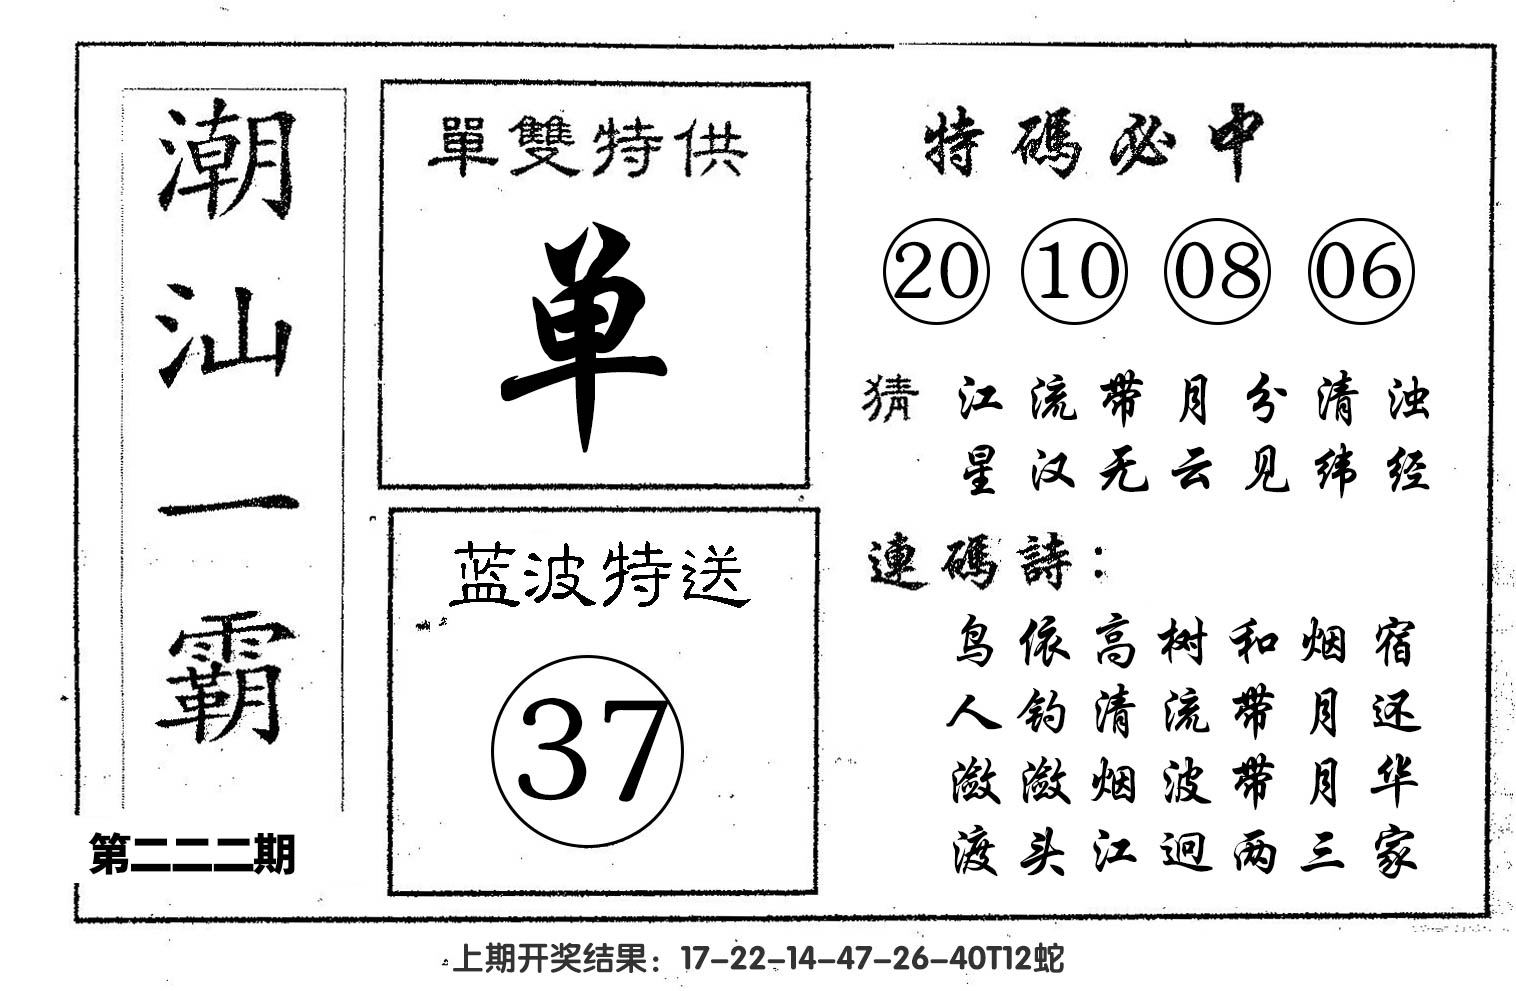 潮汕一霸
第二二二期
單雙特供
单
蓝波特送
37
特碼必中
20 10 08 06
猜 江流带月分清浊
星汉无云见纬经
連碼詩：
鸟依高树和烟宿
人钓清流带月还
潋潋烟波带月华
渡头江迥两三家
上期开奖结果：17-22-14-47-26-40T12蛇